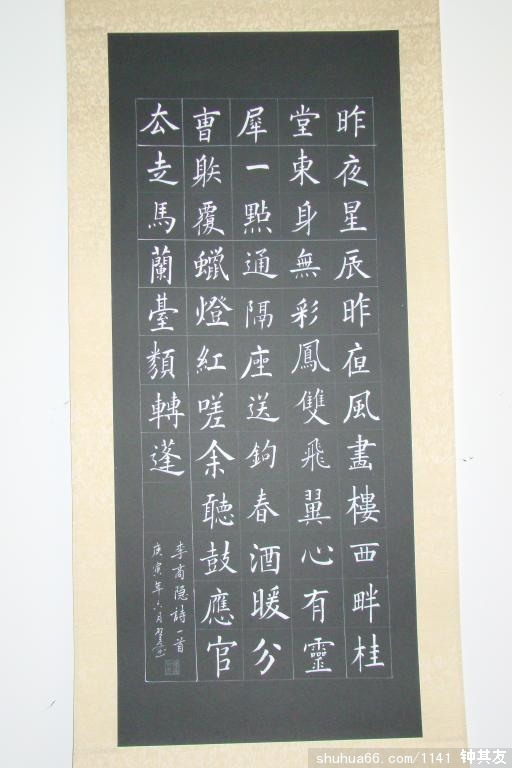 昨夜星辰昨亱風畫樓西畔桂
堂東身無彩鳳雙飛翼心有靈
犀一點通隔座送鉤春酒暖分
曹射覆蠟燈紅嗟余聽鼓應官
去走馬蘭臺類轉蓬
李商隱詩一首
庚寅年六月
shuhua66.com/1141 钟其友